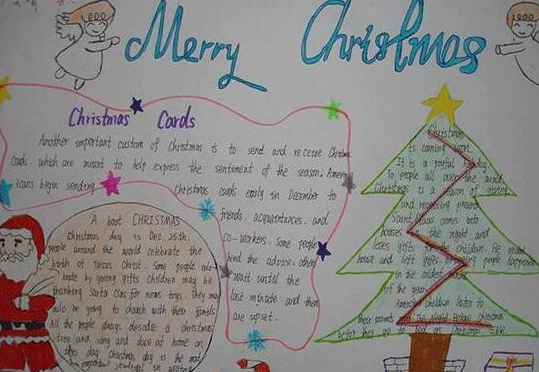 Merry Christmas
Christmas Cards
Another important custom of Christmas is to send and receive Christmas
cards which are meant to help express the sentiment of the season. Ameri
cans begin sending christmas cards early in December to
friends, acquaintances, and
co-workers. some people
heed the advice others
wait until the
last minute and then
are upset.
A bout CHRISTMAS
Christmas day is Dec. 25th.
people around the world celebrate the
birth of Jesus Christ. Some people cele
brate by giving gifts children may be
thanking Santa Clas for news toys. They may
also be going to church with their
All the people always decode a christmas
tree and sing and dace at home on
this day. Christmas day is the most
important
Christmas
is coming soon.
It is a joyful holiday
To people all over the world
Christmas is a season of giving
and receiving presents
Santa Claus comes into
houses in the night and
gifts the children. He
house and left gifts people happiness
in the
of the year
American children listen to
their parents the Night Before Christmas
before they go to bed on christmas Eve.